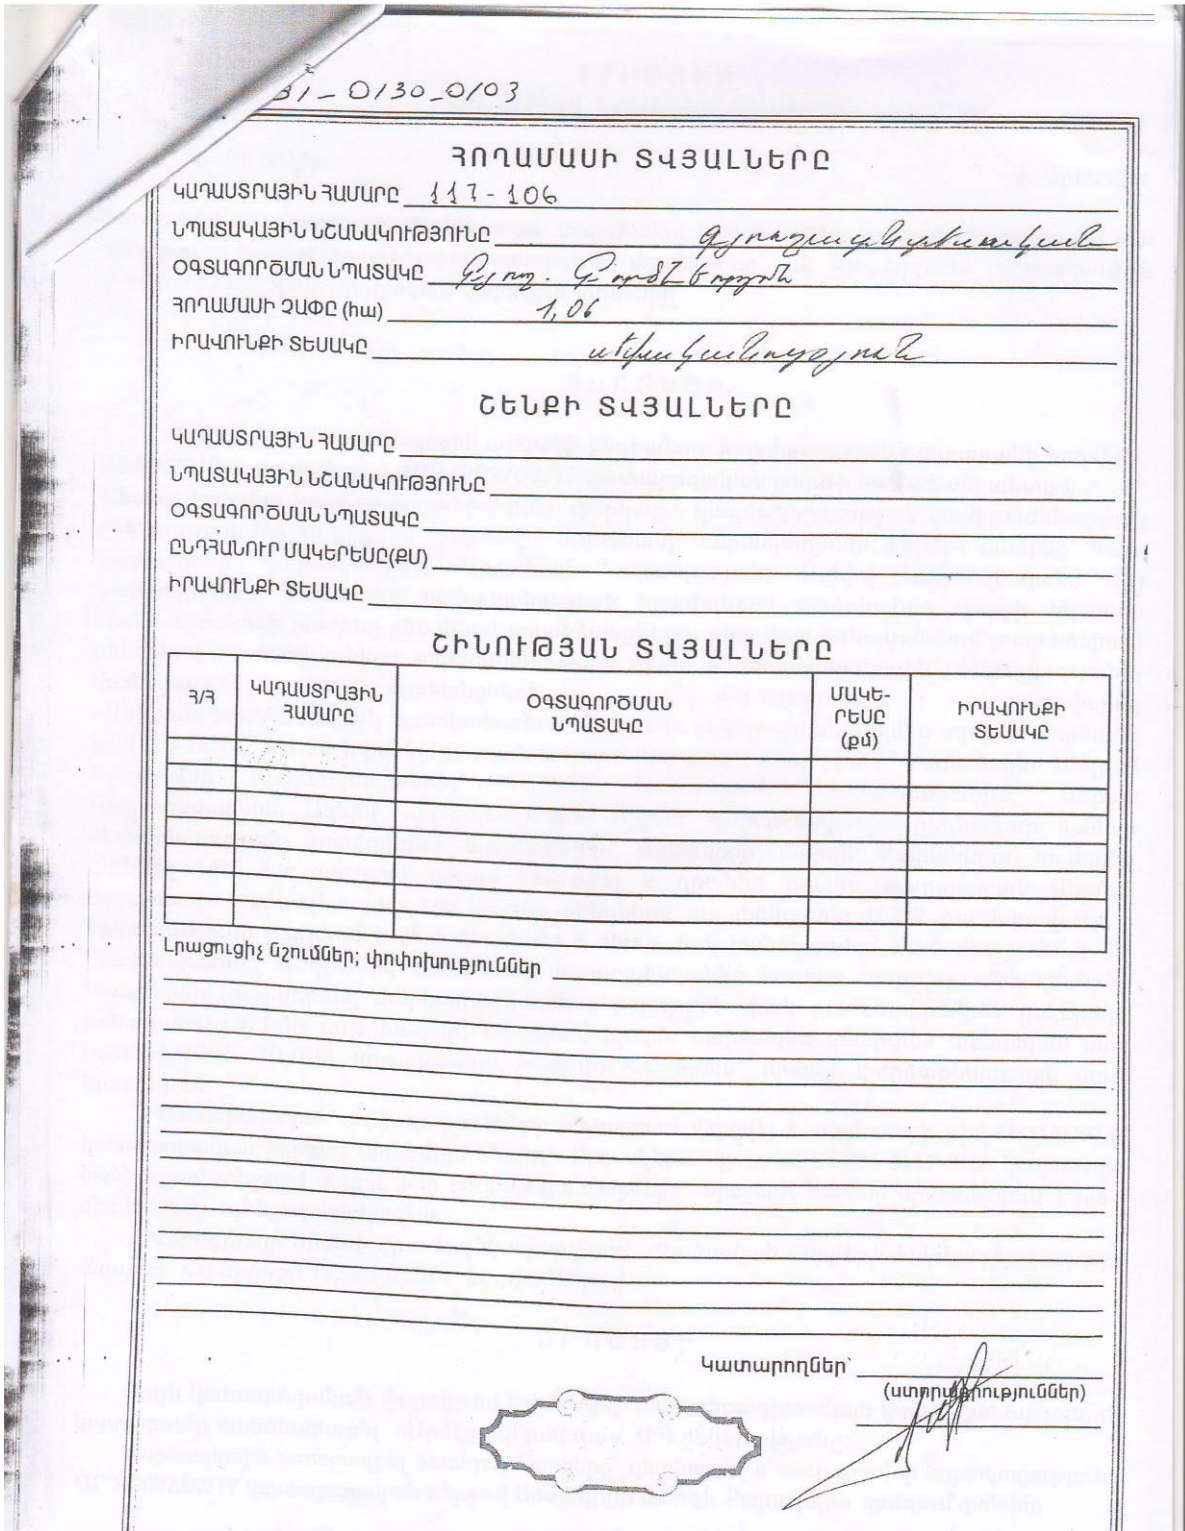 31-0130-0103
ՀՈՂԱՄԱՍԻ ՏՎՅԱԼՆԵՐԸ
ԿԱԴԱՍՏՐԱՅԻՆ ՀԱՄԱՐԸ 117-106
ՆՊԱՏԱԿԱՅԻՆ ՆՇԱՆԱԿՈՒԹՅՈՒՆԸ գյուղատնտեսական
ՕԳՏԱԳՈՐԾՄԱՆ ՆՊԱՏԱԿԸ Գյուղ. Գործունեություն
ՀՈՂԱՄԱՍԻ ՉԱՓԸ (հա) 1,06
ԻՐԱՎՈՒՆՔԻ ՏԵՍԱԿԸ սեփականություն
ՇԵՆՔԻ ՏՎՅԱԼՆԵՐԸ
ԿԱԴԱՍՏՐԱՅԻՆ ՀԱՄԱՐԸ
ՆՊԱՏԱԿԱՅԻՆ ՆՇԱՆԱԿՈՒԹՅՈՒՆԸ
ՕԳՏԱԳՈՐԾՄԱՆ ՆՊԱՏԱԿԸ
ԸՆԴՀԱՆՈՒՐ ՄԱԿԵՐԵՍԸ(ՔՄ)
ԻՐԱՎՈՒՆՔԻ ՏԵՍԱԿԸ
ՇԻՆՈՒԹՅԱՆ ՏՎՅԱԼՆԵՐԸ
Հ/Հ
ԿԱԴԱՍՏՐԱՅԻՆ
ՀԱՄԱՐԸ
ՕԳՏԱԳՈՐԾՄԱՆ
ՆՊԱՏԱԿԸ
ՄԱԿԵ-
ՐԵՍԸ
(քմ)
ԻՐԱՎՈՒՆՔԻ
ՏԵՍԱԿԸ
Լրացուցիչ նշումներ; փոփոխություններ
Կատարողներ՝
(ստորագրություններ)